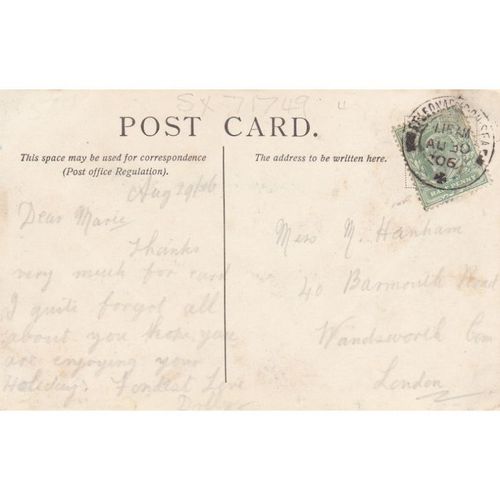 SX 71749
POST CARD.
This space may be used for correspondence
(Post office Regulation).
The address to be written here.
ST LEONARDS ON SEA
11.15 AM
AU 30
06
Aug 29/06
Dear Marie
Thanks
very much for card
I quite forgot all
about you hope you
are enjoying your
Holiday. Fondest Love
Miss M. Hanham
40 Barmouth Road
Wandsworth Com
London